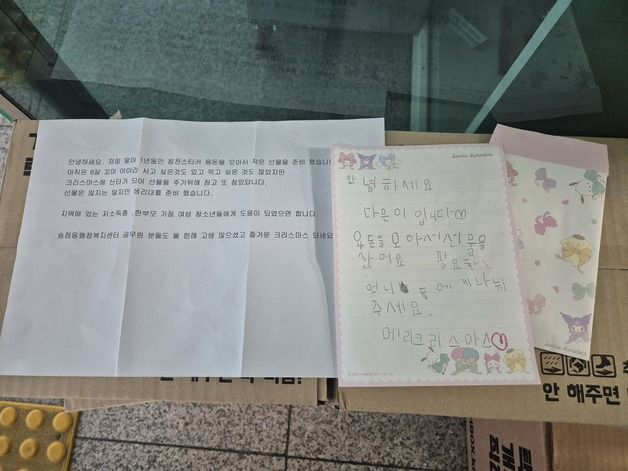 안녕하세요. 저희 딸이 1년동안 칭찬스티커 용돈을 모아서 작은 선물을 준비 했습니
아직은 6살 꼬마 아이라 사고 싶은것도 있고 먹고 싶은 것도 많았지만
크리스마스에 산타가 되어 선물을 주기위해 참고 또 참았답니다.
선물은 많지는 않지만 생리대를 준비 했습니다.
지역에 있는 저소득층, 한부모 가정 여성 청소년들에게 도움이 되었으면 합니다.
송정동행정복지센터 공무원 분들도 올 한해 고생 많으셨고 즐거운 크리스마스 되세요
Sanrio characters
안녕하세요
다은이 입니다♡
용돈을 모아서 선물을
샀어요 필요한
언니들에게 나눠
주세요.
메리크리스마스♡
Sanrio characters
안 해주면